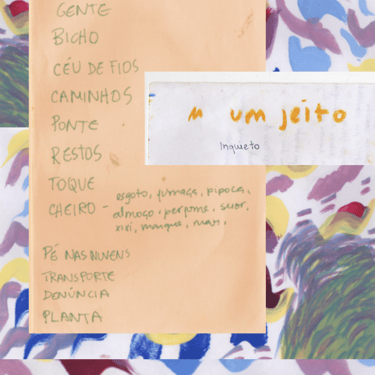 GENTE
BICHO
CÉU DE FIOS
CAMINHOS
PONTE
RESTOS
TOQUE
CHEIRO - esgoto, fumaça, pipoca,
almoço, perfume, suor,
xixi, mangue, mar,
PÉ NAS NUVENS
TRANSPORTE
DENÚNCIA
PLANTA
um jeito
Inquieto